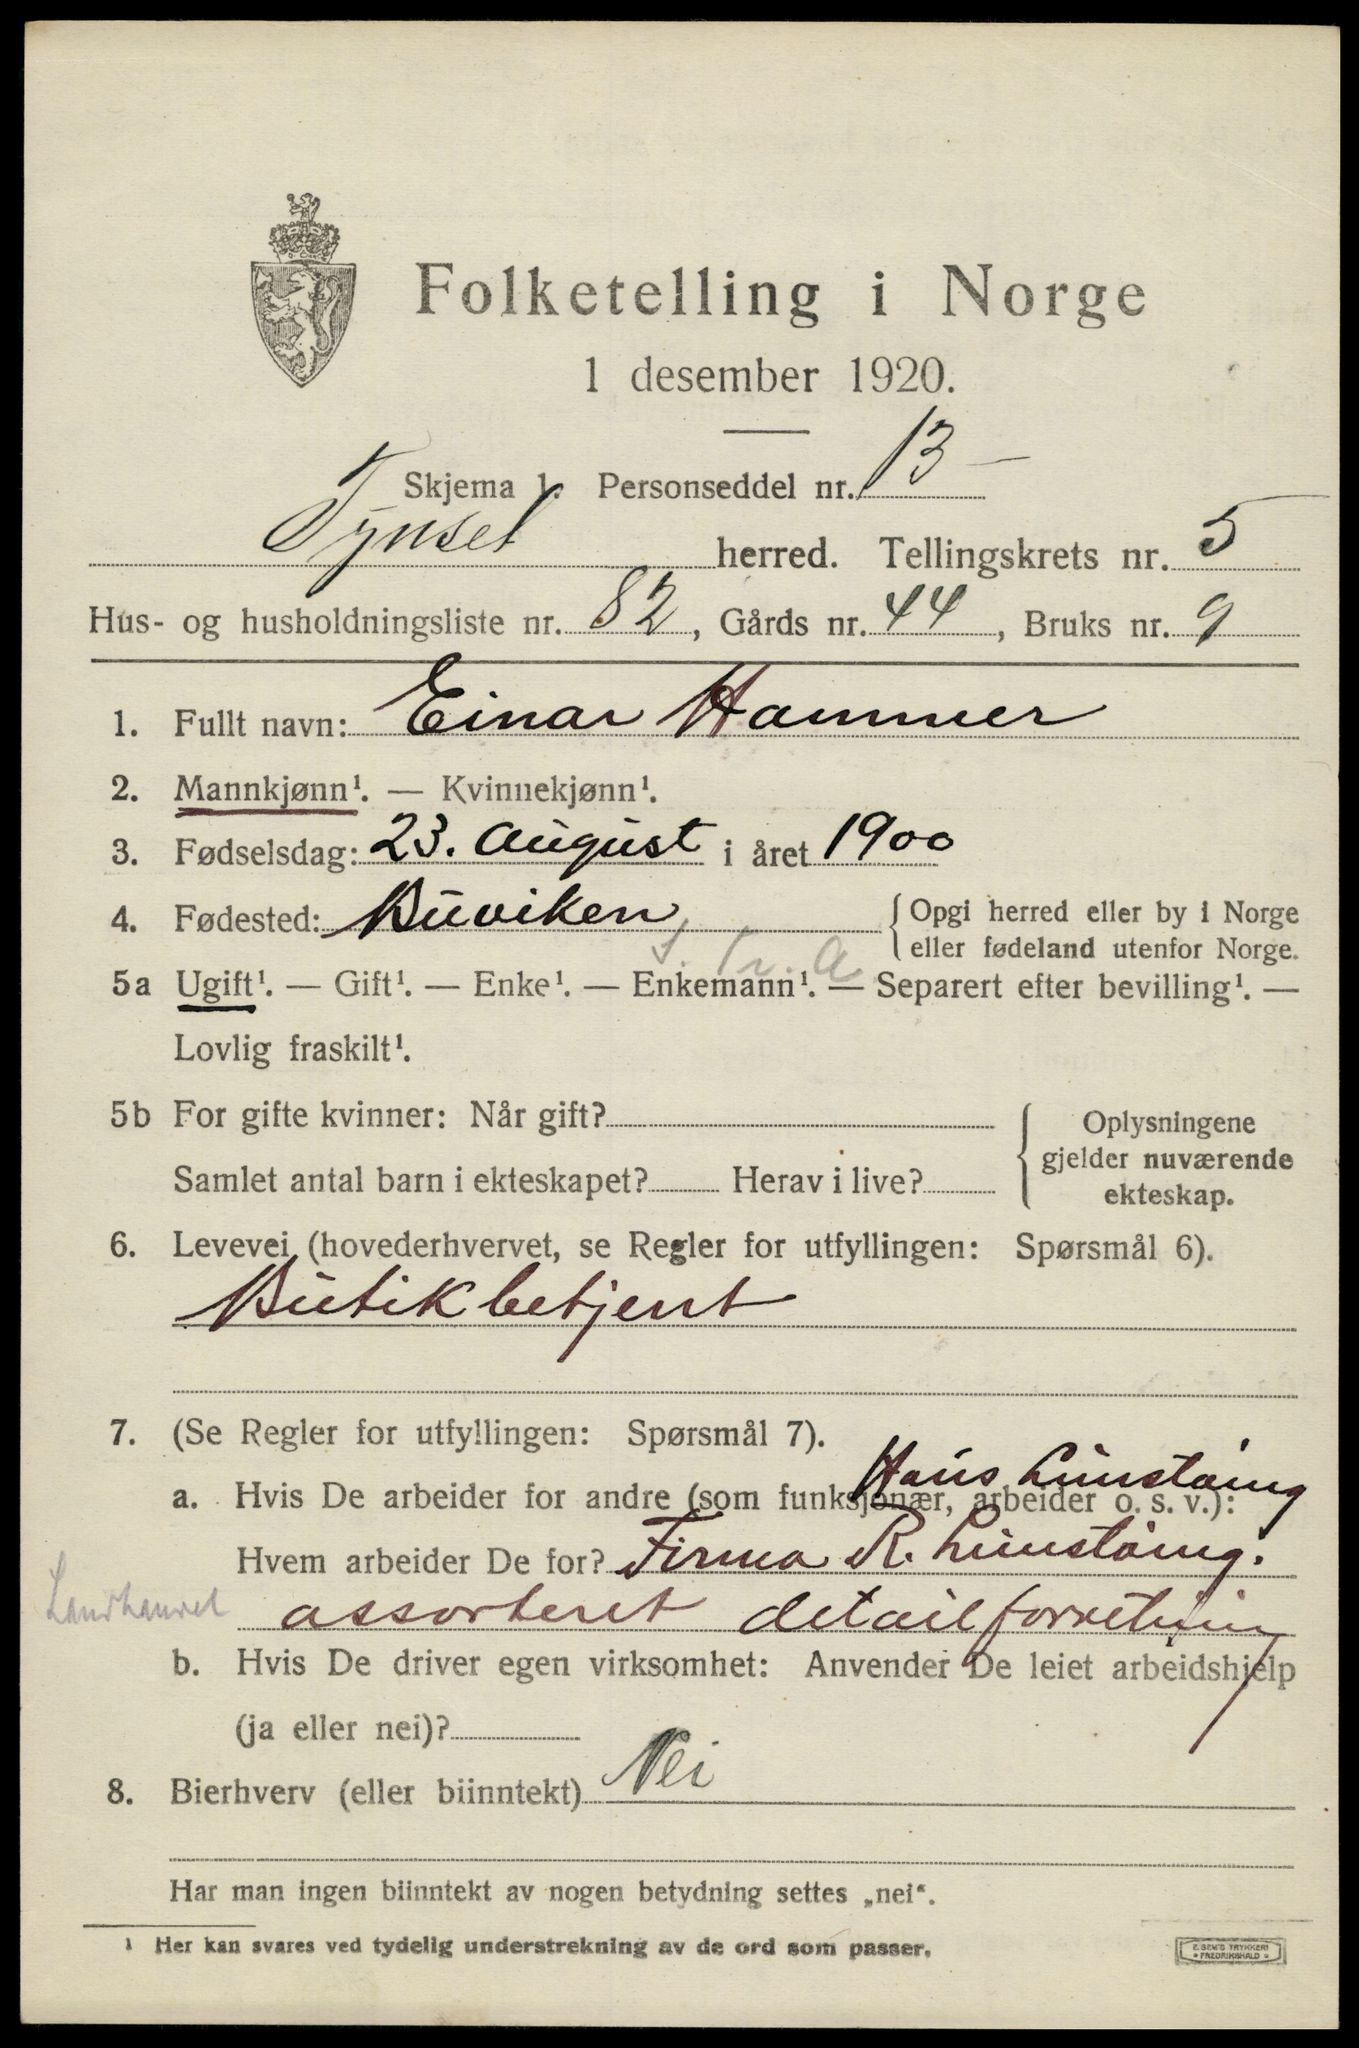 Folketelling i Norge
1 desember 1920.
Skjema 1. Personseddel nr. 13 -
Tynset herred. Tellingskrets nr. 5
Hus- og husholdningsliste nr. 82, Gårds nr. 44, Bruks nr. 9
1. Fullt navn: Einar Hammer
2. Mannkjønn¹. — Kvinnekjønn¹.
3. Fødselsdag: 23. August i året 1900
4. Fødested: Buviken {Opgi herred eller by i Norge
eller fødeland utenfor Norge.
S. Tr. a
5a Ugift¹. — Gift¹. — Enke¹. — Enkemann¹. — Separert efter bevilling¹. —
Lovlig fraskilt¹.
5b For gifte kvinner: Når gift?
Samlet antal barn i ekteskapet? Herav i live?
Oplysningene
gjelder nuværende
ekteskap.
6. Levevei (hovederhvervet, se Regler for utfyllingen: Spørsmål 6).
Butikbetjent
7. (Se Regler for utfyllingen: Spørsmål 7).
Hans Lunstäing
a. Hvis De arbeider for andre (som funksjonær, arbeider o. s. v.):
Hvem arbeider De for? Firma R. Lunstäing.
Landhandel assorteret detailforretning
b. Hvis De driver egen virksomhet: Anvender De leiet arbeidshjelp
(ja eller nei)?
8. Bierhverv (eller biinntekt) Nei
Har man ingen biinntekt av nogen betydning settes „nei“.
¹ Her kan svares ved tydelig understrekning av de ord som passer.
E. SEM'S TRYKKERI
* FREDRIKSHALD *